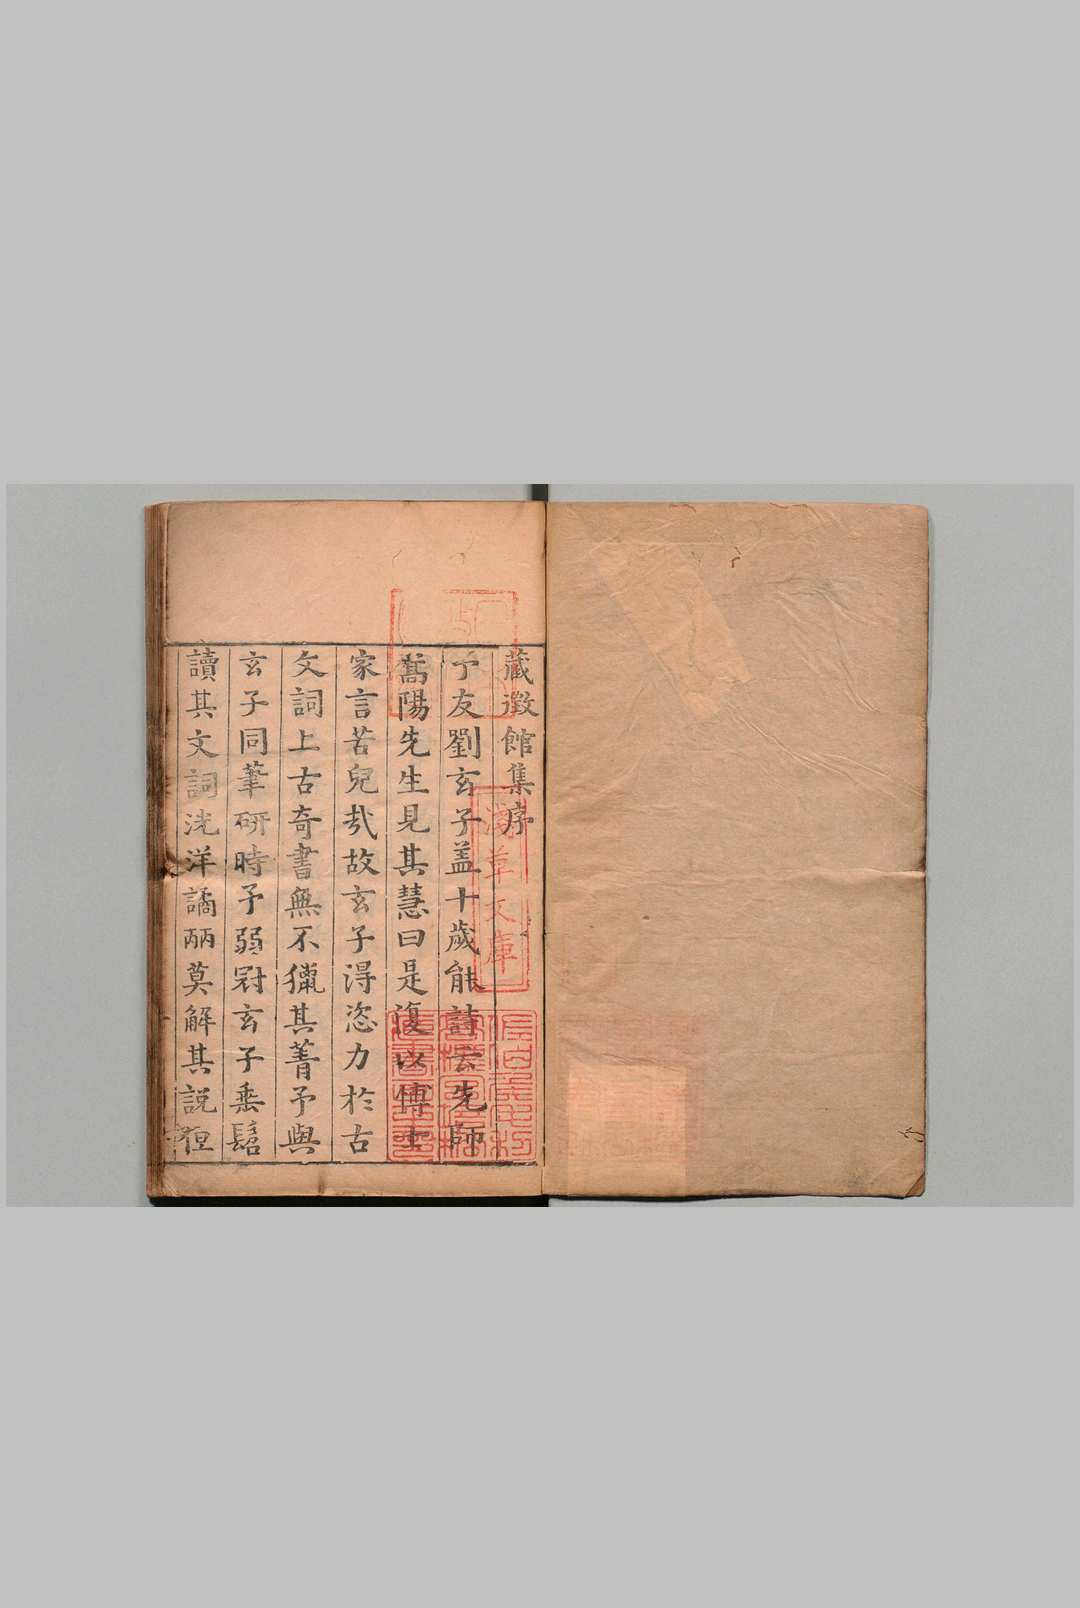 藏徴館集序
予友劉玄子盖十歲能詩云先師
嵩陽先生見其慧曰是復以傅士
家言苦兒㢤故玄子淂恣力於古
文詞上古奇書無不獵其菁予與
玄子同筆研時予弱冠玄子垂髫
讀其文詞洸洋譎㓈莫解其説徃
淺草文庫